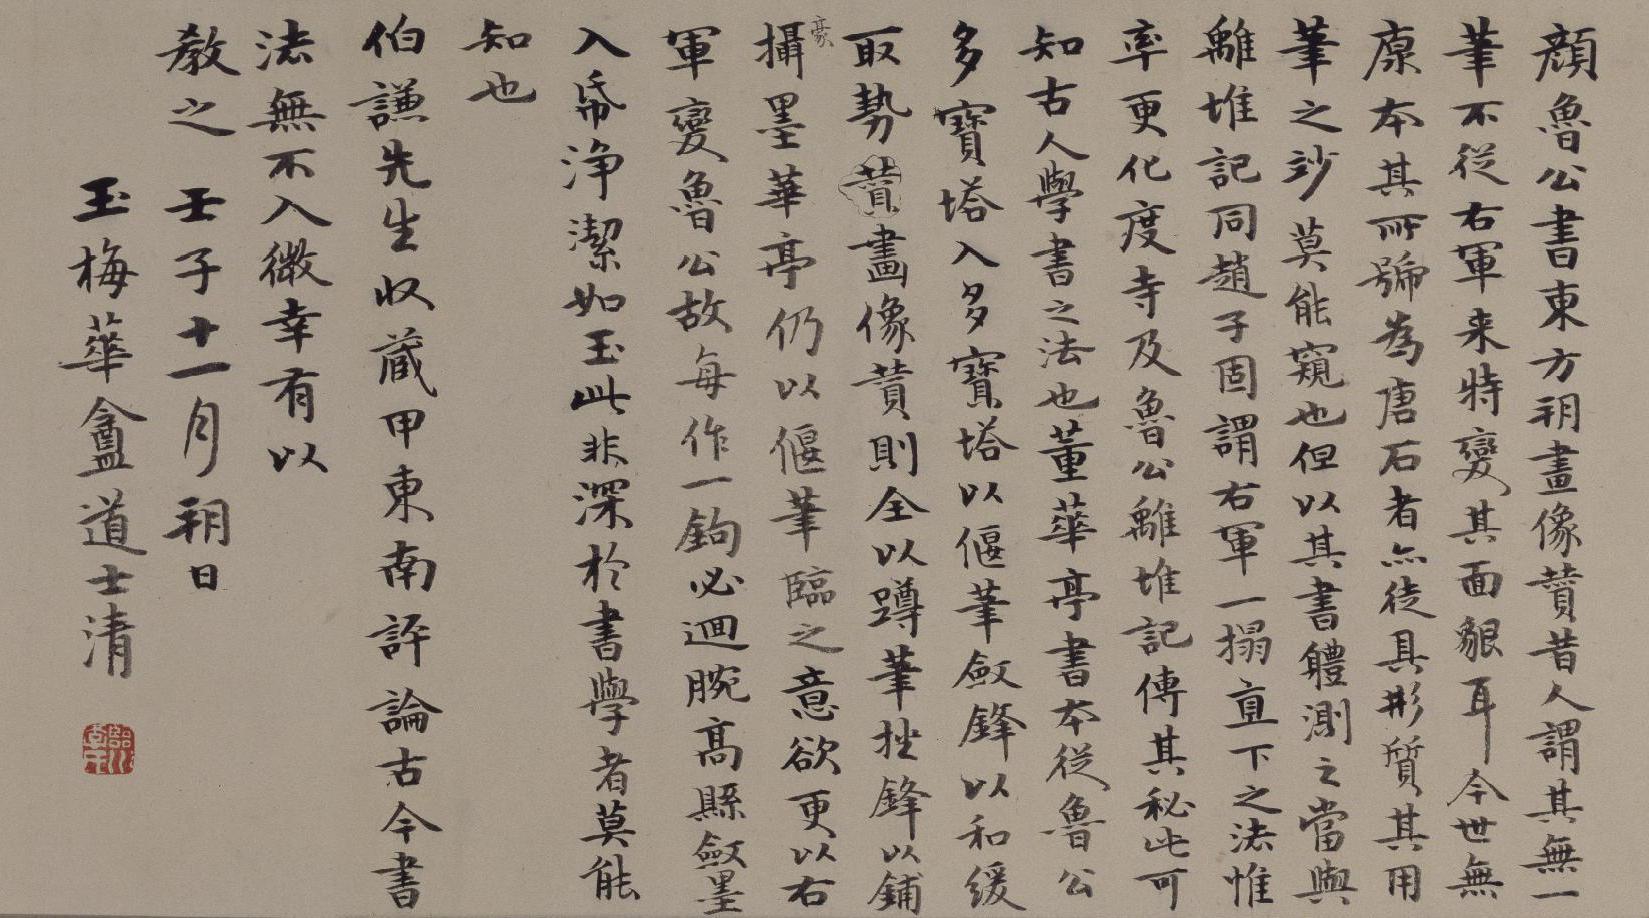 顏魯公書東方朔畫像贊昔人謂其無一
筆不從右軍來特變其面貌耳今世無
原本其所號為唐石者亦徒具形質其用
筆之妙莫能窺也但以其書體測之當與
離堆記同趙子固謂右軍一搨直下之法惟
率更化度寺及魯公離堆記傳其秘此可
知古人學書之法也董華亭書本從魯公
多寶塔入多寶塔以偃筆斂鋒以和緩
取勢贊畫像贊則全以蹲筆挫鋒以鋪
豪
攝墨華亭仍以偃筆臨之意欲更以右
軍變魯公故每作一鉤必迴腕高縣斂墨
入帋淨潔如玉此非深於書學者莫能
知也
伯謙先生收藏甲東南評論古今書
法無不入微幸有以
教之 壬子十一月朔日
玉梅華盦道士清